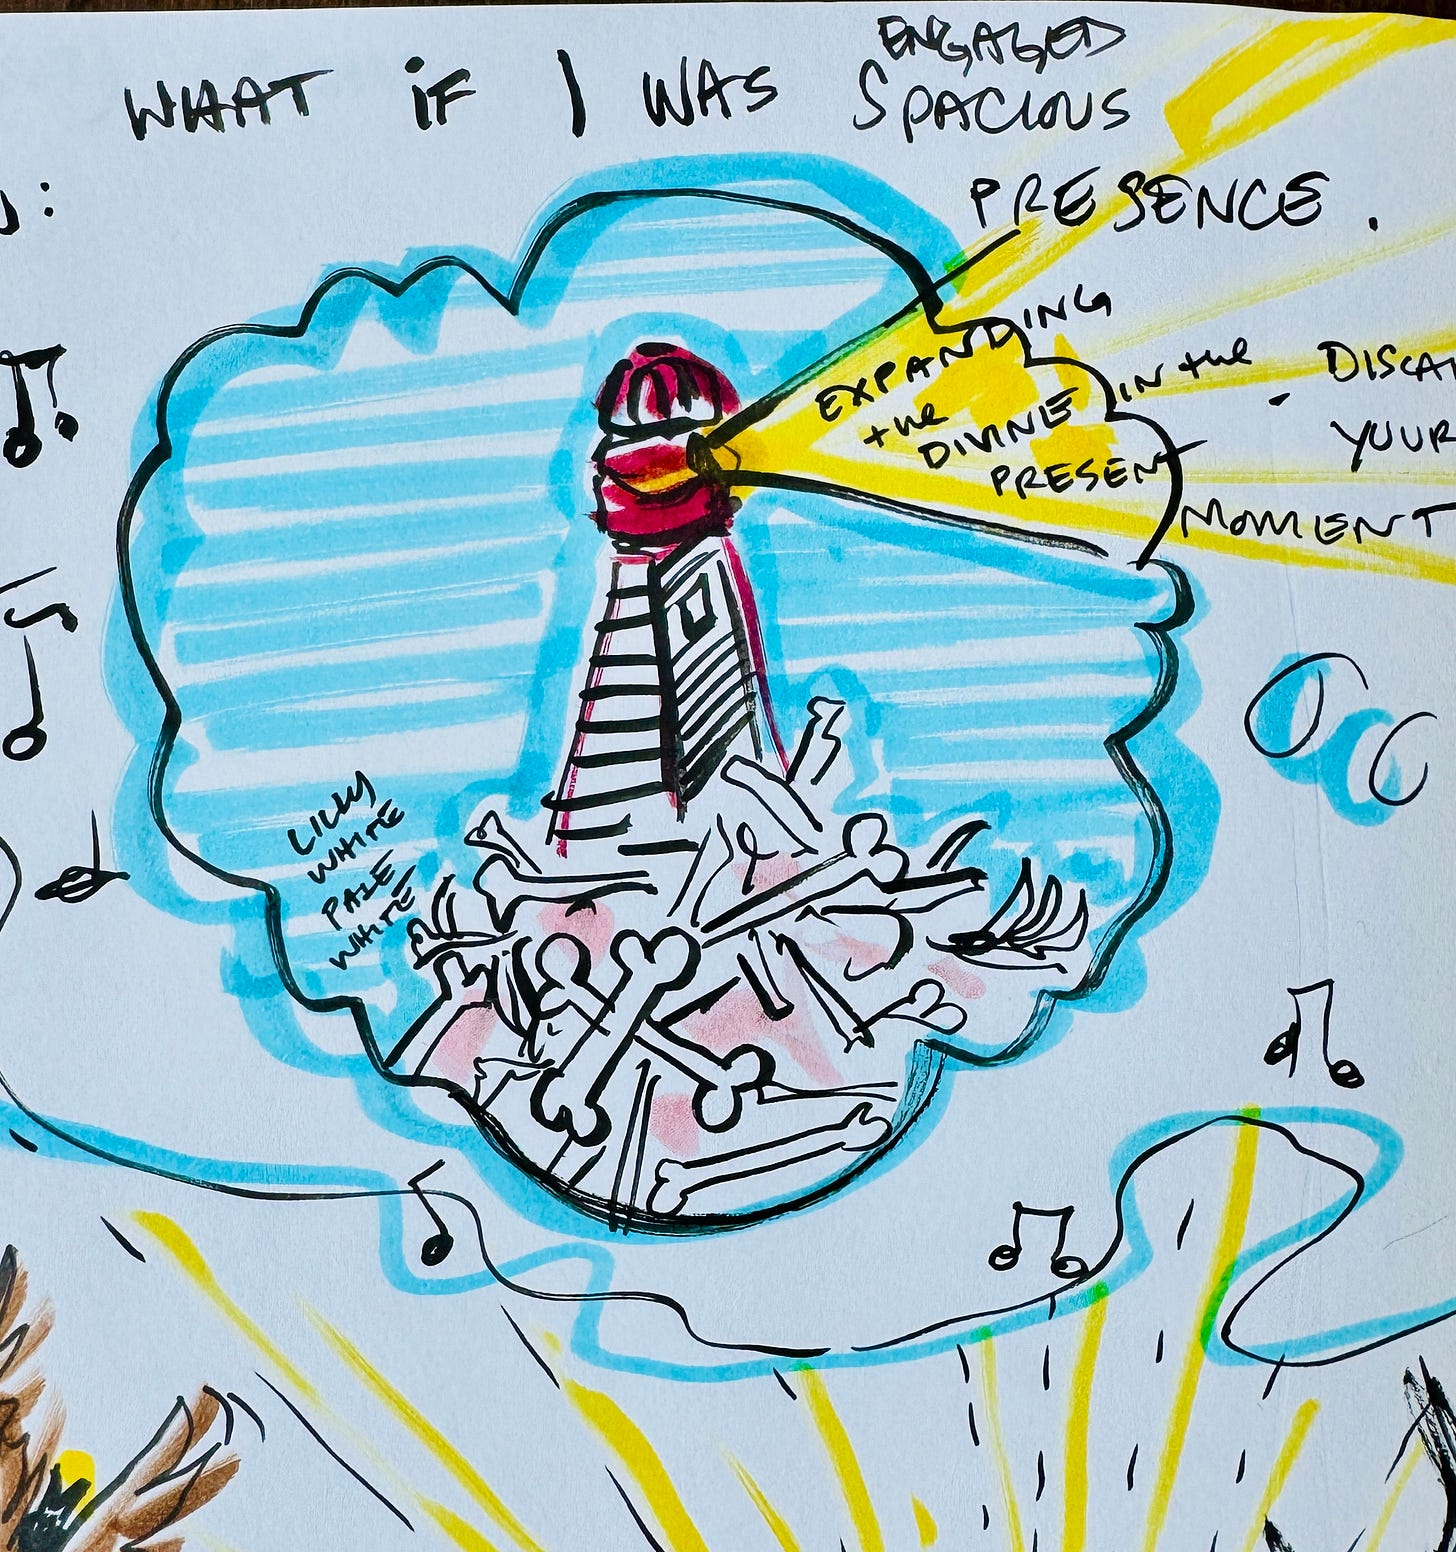 ENGAGED
WHAT IF I WAS SPACIOUS
PRESENCE.
EXPANDING
the DIVINE IN the
PRESENT MOMENT
YOUR
LILLY
WHITE
PALE
WHITE